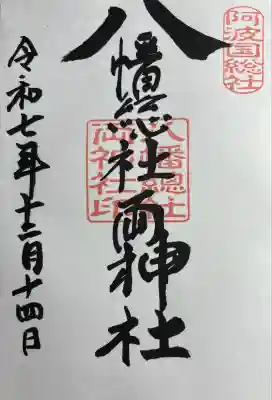 阿波国総社
八幡總社両神社
八幡總社両神社印
令和七年十二月十四日